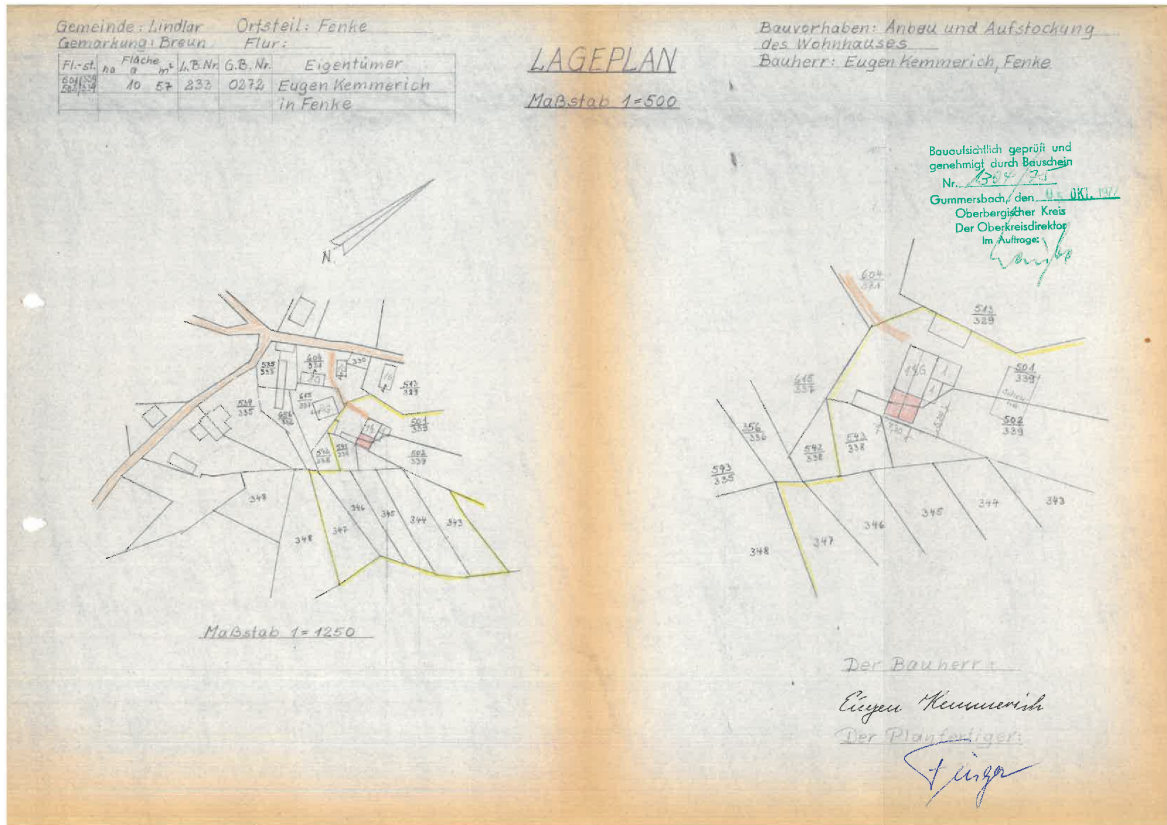 Gemeinde: Lindlar Ortsteil: Fenke
Gemarkung: Breun Flur:
Fl.-st. Fläche L.B.Nr. G.B.Nr. Eigentümer
ha a m²
10 57 233 0272 Eugen Kemmerich
in Fenke
LAGEPLAN
Maßstab 1=500
Bauvorhaben: Anbau und Aufstockung
des Wohnhauses
Bauherr: Eugen Kemmerich, Fenke
Bauaufsichtlich geprüft und
genehmigt durch Bauschein
Nr.
Gummersbach, den OKT.
Oberbergischer Kreis
Der Oberkreisdirektor
Im Auftrage:
N
604
331
330
513
329
615
337
501
339
502
339
348
348
347
346
345
344
343
Maßstab 1=1250
604
331
513
329
501
339
615
337
502
339
356
336
542
338
543
338
593
335
348
347
346
345
344
343
Der Bauherr:
Eugen Kemmerich
Der Planfertiger: